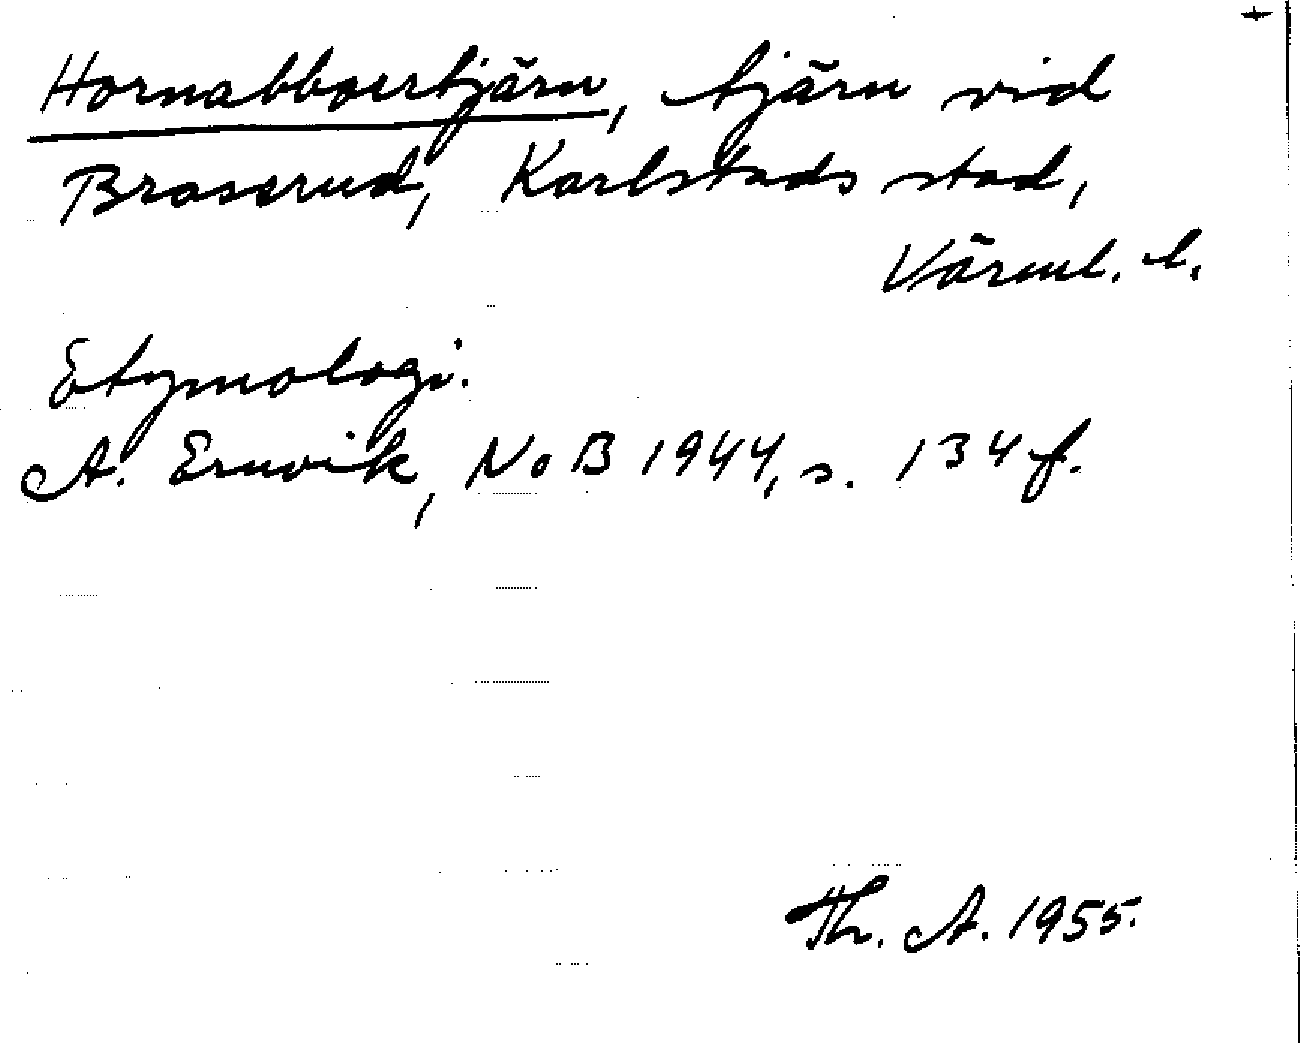 Hornabborrtjärn, tjärn vid
Braserud, Karlstads stad,
Värml. l.
Etymologi.
A. Ernvik, NoB 1944, s. 134 f.
Th. A. 1955.